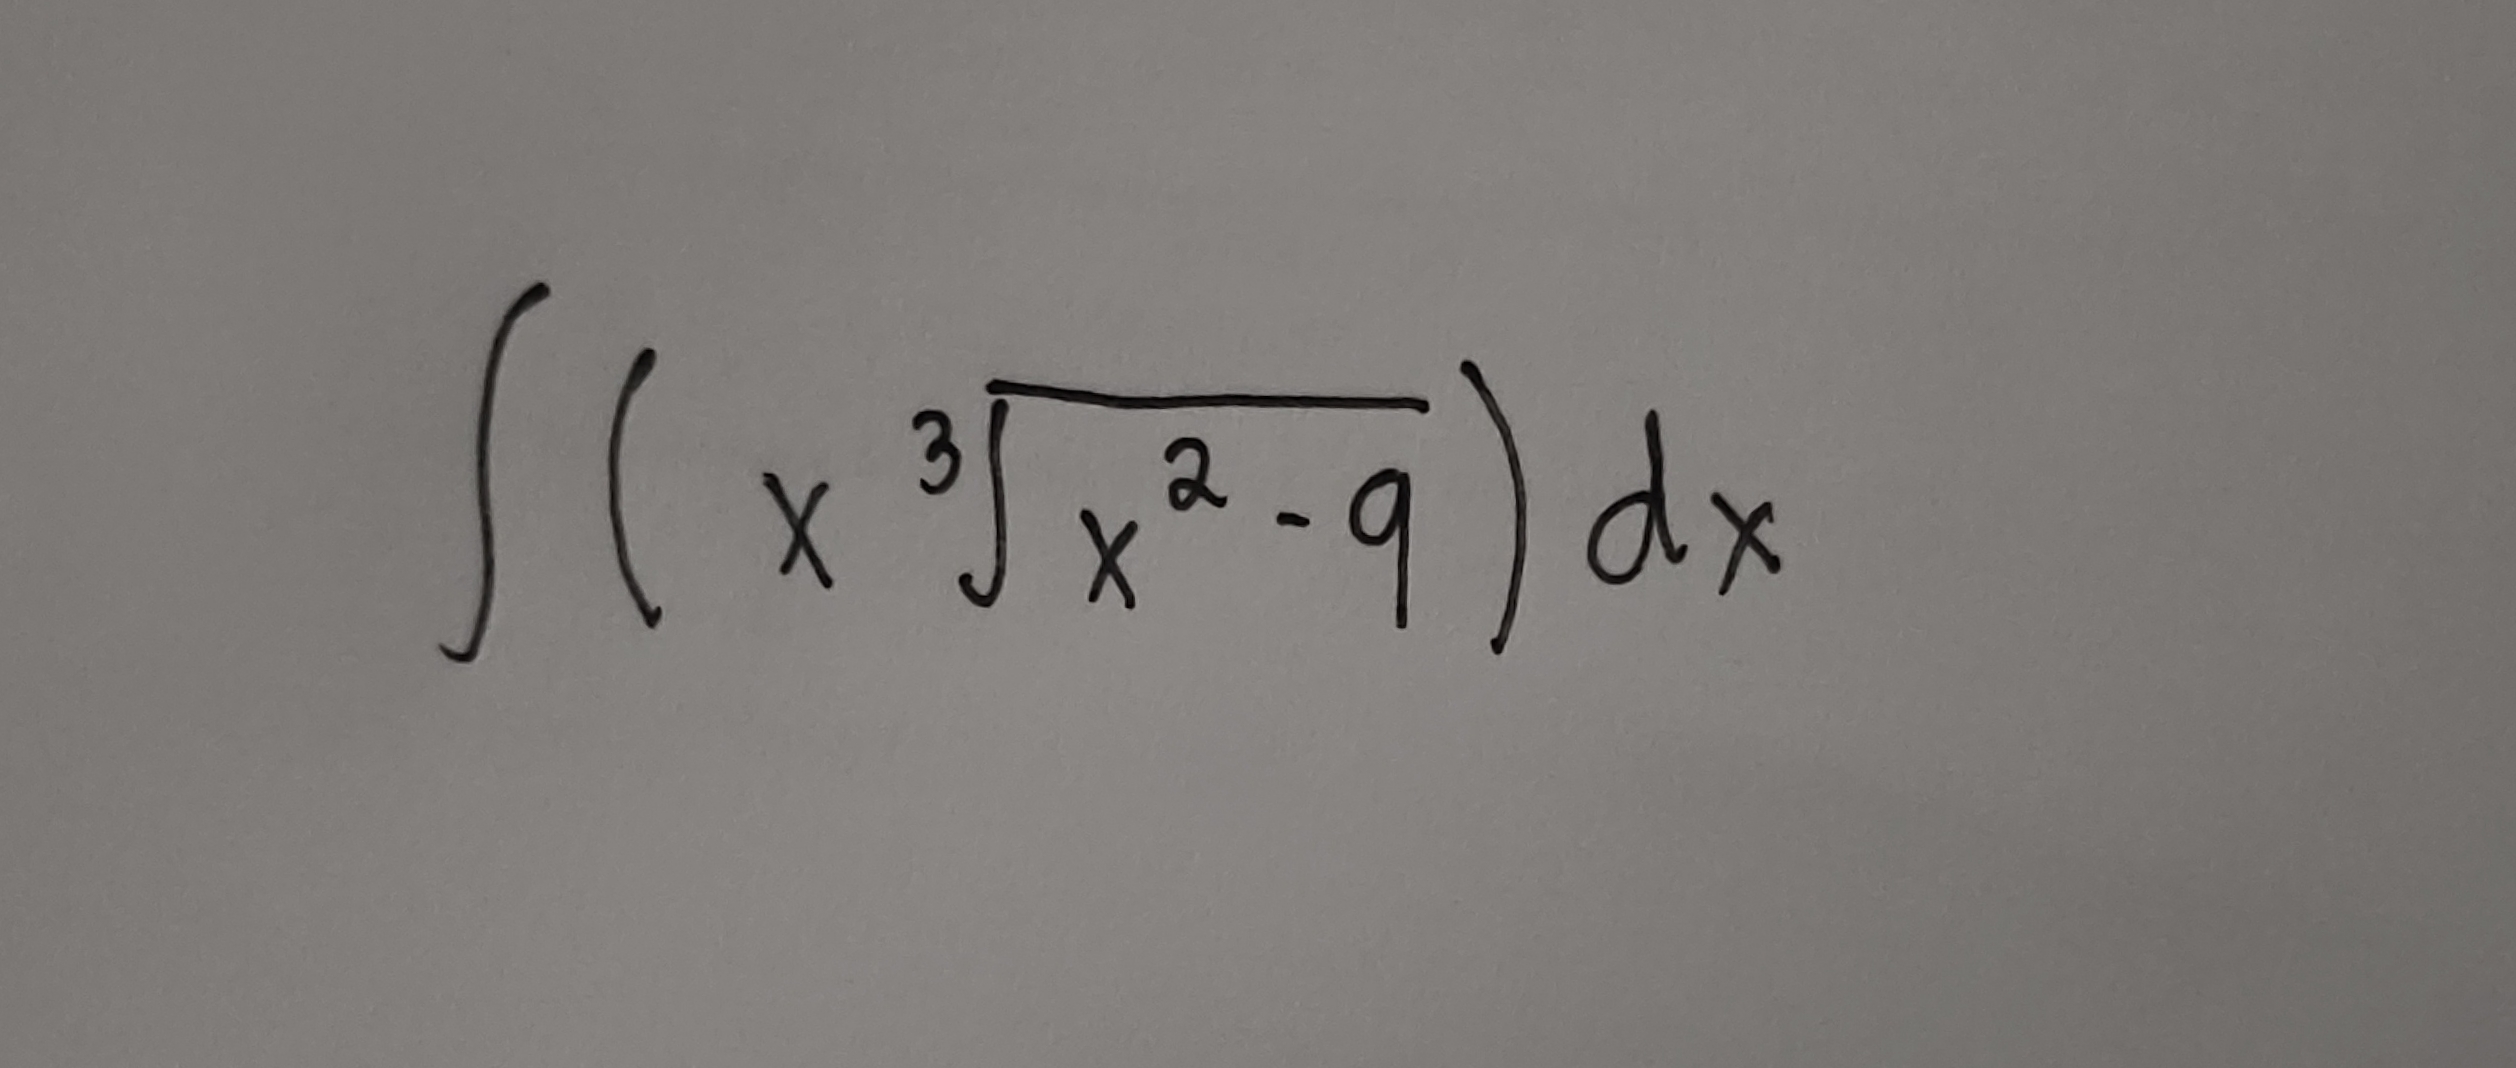 ∫ ( x ³√(x² - 9) ) dx